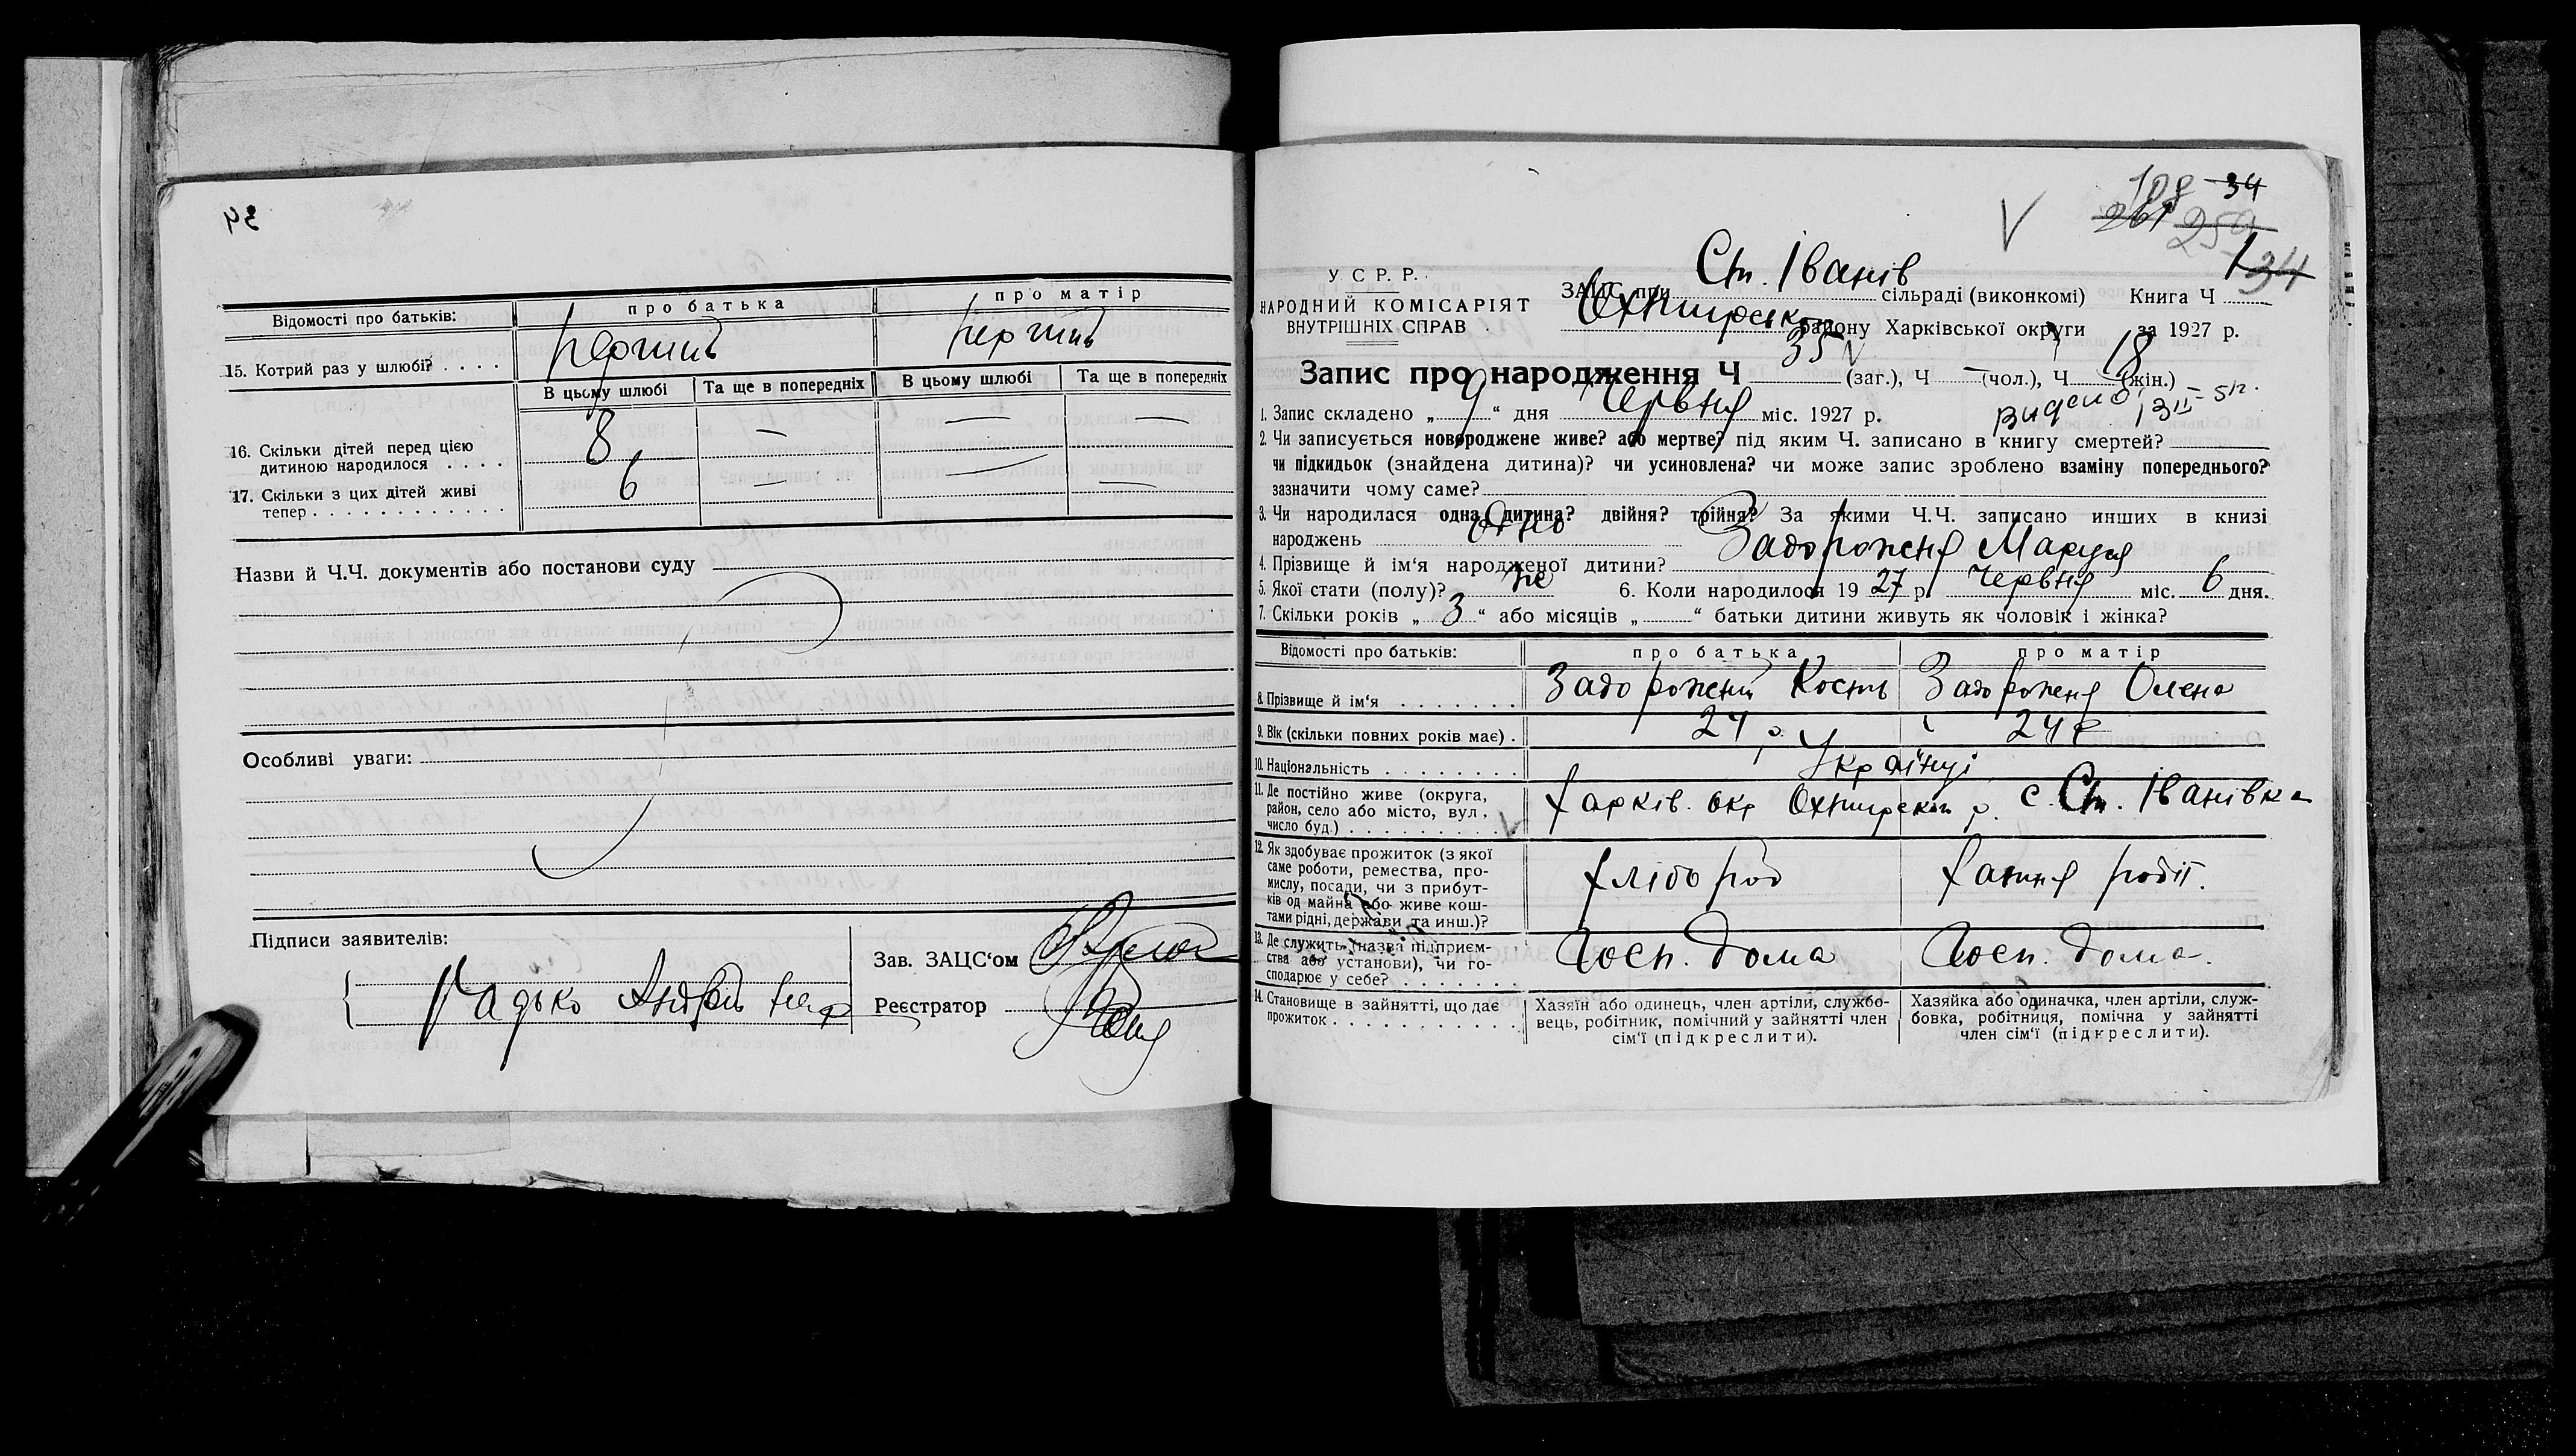 34
Відомості про батьків: про батька про матір
15. Котрий раз у шлюбі? . . . . Перший Перший
В цьому шлюбі Та ще в попередніх В цьому шлюбі Та ще в попередніх
16. Скільки дітей перед цією
дитиною народилося . . . . 8 — — —
17. Скільки з цих дітей живі
тепер . . . . . . . . . . . . 6 — — —
Назви й Ч.Ч. документів або постанови суду
Особливі уваги:
Підписи заявителів:
Зав. ЗАЦС‘ом
Радько Андрій
Реєстратор
108 34
261 259
134
У С Р. Р.
НАРОДНИЙ КОМІСАРІЯТ
ВНУТРІШНІХ СПРАВ
ЗАЦС при Ст. Іванів сільраді (виконкомі) Книга Ч
Охтирськ району Харківської округи за 1927 р.
Запис про народження Ч 35 (заг.), Ч — (чол.), Ч 18 (жін.)
видано 13 II – 51 р.
1. Запис складено „ 9 “ дня Червня міс. 1927 р.
2. Чи записується новороджене живе? або мертве? під яким Ч. записано в книгу смертей?
чи підкидьок (знайдена дитина)? чи усиновлена? чи може запис зроблено взаміну попереднього?
зазначити чому саме?
3. Чи народилася одна дитина? двійня? трійня? За якими Ч.Ч. записано инших в книзі
народжень Одно
4. Прізвище й ім‘я народженої дитини? Задорожня Маруся
5. Якої стати (полу)? жі 6. Коли народилося 19 27 р. Червня міс. 6 дня.
7. Скільки років „ 3 “ або місяців „ “ батьки дитини живуть як чоловік і жінка?
Відомості про батьків: про батька про матір
8. Прізвище й ім‘я . . . . . . . Задорожний Кость Задорожня Олена
9. Вік (скільки повних років має) . 24 р. 24 р
10. Національність . . . . . . . . Українці
11. Де постійно живе (округа,
район, село або місто, вул.,
число буд.) . . . . . . . . . . Харків. окр Охтирськ р. с. Ст. Іванівка
12. Як здобуває прожиток (з якої
саме роботи, ремества, про-
мислу, посади, чи з прибут-
ків од майна або живе кош-
тами рідні, держави та инш.)? Хлібороб Хатня робіт.
13. Де служить (назва підприєм-
ства або установи), чи го-
сподарює у себе? . . . . . . . Госп. дома Госп. дома.
14. Становище в зайнятті, що дає
прожиток . . . . . . . . . . . .
Хазяїн або одинець, член артіли, службо-
вець, робітник, помічний у зайнятті член
сім‘ї (підкреслити).
Хазяйка або одиначка, член артіли, служ-
бовка, робітниця, помічна у зайнятті
член сім‘ї (підкреслити).